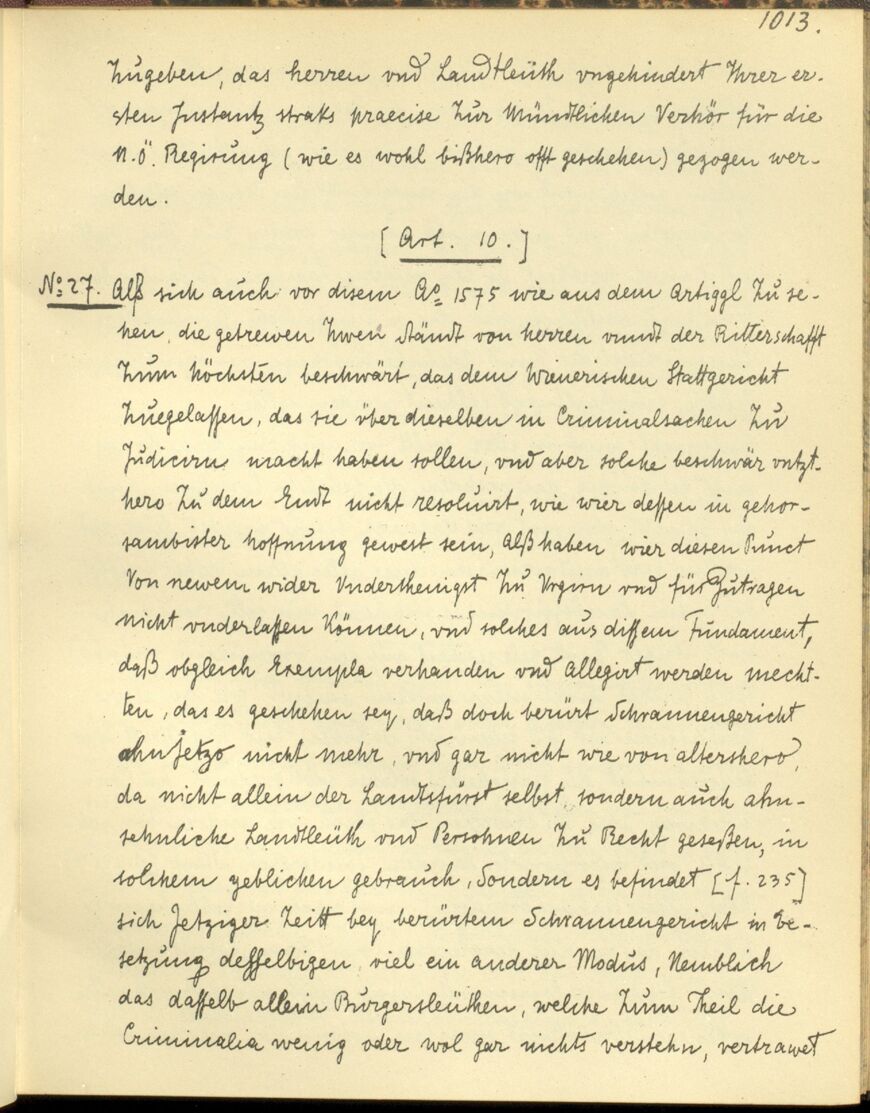 1013.
zugeben, das herren vnd Landtleüth vngehindert Ihrer er-
sten Instantz straks praecise zur Mündtlichen Verhör für die
N.Ö. Regirung (wie es wohl bißhero offt geschehen) gezogen wer-
den.
[Art. 10.]
No 27. Alß sich auch vor disem Ao 1575 wie aus dem Artiggl zu se-
hen, die getrewen zwen Ständt von herren vnndt der Ritterschafft
zum höchsten beschwärt, das dem Wienerischen Stattgericht
zuegelassen, das sie über dieselben in Criminalsachen zu
Judicirn macht haben sollen, vnd aber solche beschwär vntzt-
hero zu dem Endt nicht resoluirt, wie wier dessen in gehor-
sambister hoffnung gewest sein, Alß haben wier diesen Punct
Von newem wider Vnderthenigst zu Vrgirn vnd fürzutragen
nicht vnderlassen können, vnd solches aus dissem Fundament,
daß obgleich Exempla verhanden vnd Allegirt werden mecht-
ten, das es geschehen sey, daß doch berürt Schrannengericht
ahnjetzo nicht mehr, vnd gar nicht wie von altershero,
da nicht allein der Landtsfürst selbst, sondern auch ahn-
sehnliche Landtleüth vnd Persohnen zu Recht geseßen, in
solchem yeblichen gebrauch, Sondern es befindet [f. 235]
sich Jetziger Zeitt bey berürtem Schrannengericht in Be-
setzung desselbigen viel ein anderer Modus, Nemblich
das dasselb allein Burgersleüthen, welche zum Theil die
Criminalia wenig oder wol gar nichts verstehn, vertrawet